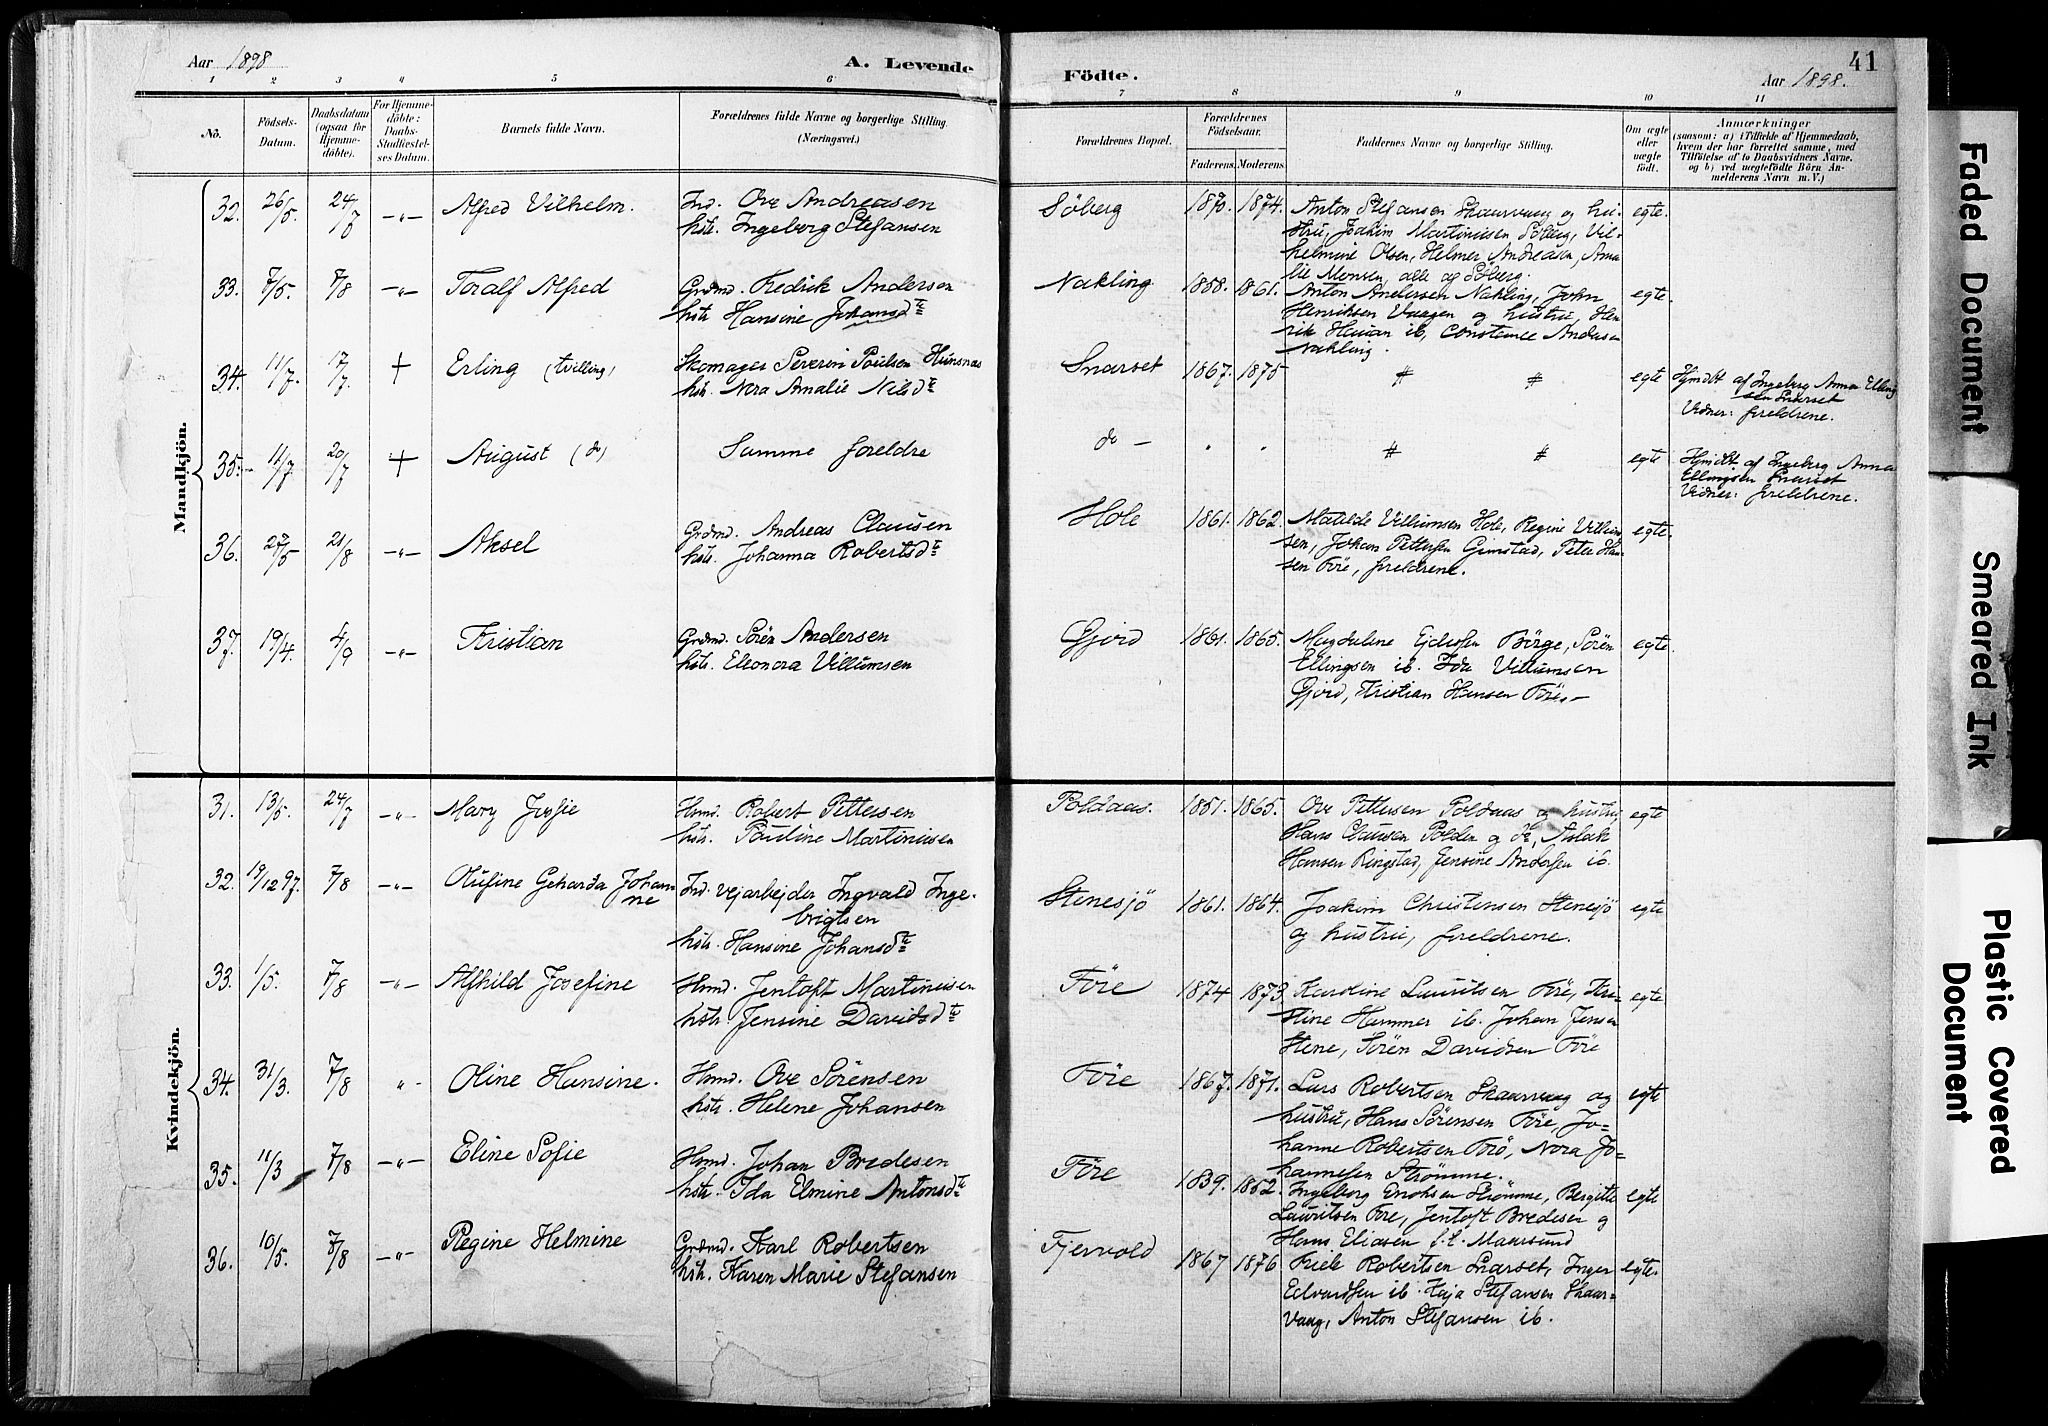 Aar 1898
A. Levende
Födte.
Aar 1898.
41
1 2 3 4 5 6 7 8 9 10 11
No.
Födsels-
Datum.
Daabsdatum
(ogsaa for
Hjemme-
döbte).
For Hjemme-
döbte:
Daabs-
Stadfæstel-
ses Datum.
Barnets fulde Navn.
Forældrenes fulde Navne og borgerlige Stilling.
(Næringsvei.)
Forældrenes Bopæl.
Forældrenes
Födselsaar.
Faderens. Moderens.
Faddernes Navne og borgerlige Stilling.
Om ægte
eller
uægte
födt.
Anmærkninger
(saasom: a) i Tilfælde af Hjemmedaab,
hvem der har forrettet samme, med
Tilföielse af to Daabsvidners Navne,
og b) ved uægtefödte Börn An-
melderens Navn m. V.)
Mandkjön.
32. 26/5. 24/7 -"- Alfred Vilhelm. Ind. Ove Andreasen
hstr. Ingeborg Stefansen
Söberg 1870. 1874. Anton Stefansen Skaarvaag og hu-
stru, Joakim Martinusen Söberg, Vil-
helmine Olsen, Helmer Andreasen, Ama-
lie Monsen, alle og Söberg.
egte.
33. 7/5. 7/8 -"- Toralf Alfred Grdmd. Fredrik Andersen
hstr Hansine Johansdtr
Nakling 1858. 1861. Anton Andersen Nakling, John
Henriksen Vaagen og hustru, Hen-
rik Hauan ib, Constance Andersen
Nakling.
egte.
34. 11/7. 17/7. + Erling (tvilling) Skomager Severin Poulsen Hunsnas
hstr. Nora Amalie Nilsdtr
Snarset 1867. 1875 # # egte Hjmdbt af Ingeborg Anna Elling
sen Snarset
Vidner: forældrene.
35. 11/7 20/7 + August (do) Samme forældre
do - " " # # egte Hjmdbt af Ingeborg Anna
Ellingsen Snarset
Vidner: forældrene.
36. 27/5 21/8 -"- Aksel Grdmd. Andreas Clausen
hstr. Johanna Robertsdtr
Hole 1861. 1862. Matilde Villumsen Hole, Regine Villum-
sen, Johan Pettersen Gimstad, Peter Han-
sen Före, forældrene.
egte.
37. 19/4. 4/9 -"- Kristian Grdmd. Sören Andersen
hstr. Eleonora Villumsen
Gjerd 1861. 1865. Magdalene Ejdissen Börge, Sören
Ellingsen ib. Ida Villumsen
Gjerd, Kristian Hansen Före. -
egte.
Kvindekjön.
31. 13/5. 24/7 -"- Mary Josie Hsmd. Robert Pettersen
hstr. Pauline Martinusen
Poldaas. 1851. 1865. Ove Pettersen Poldaas og hustru,
Hans Clausen Polden og do, Aslak
Hansen Ringstad, Jensine Andersen ib.
egte
32. 19/12 97. 7/8 -"- Olufine Geharda Johan-
ne
Ind. vejarbejder Ingvald Inge-
brigtsen
hstr. Hansine Johansdtr
Stenesjö 1861. 1864. Joakim Christensen Stenesjö
og hustru, forældrene.
egte
33. 1/5. 7/8 -"- Alfhild Josefine Hsmd. Jentoft Martinusen
hstr. Jensine Davidsdtr
Före 1874 1873 Karoline Lauritsen Före, Kri-
stine Hammer ib. Johan Jensen
Stene, Sören Davidsen Före
egte
34. 31/3. 7/8 " - Oline Hansine. Hsmd. Ove Sörensen
hstr. Helene Johansen
Före 1867. 1871. Lars Robertsen Skaarvaag og
hustru, Hans Sörensen Före, Jo-
hanne Robertsen Före, Nora Jo-
hannesen Strömme.
egte
35. 11/3 7/8 -"- Eline Sofie Hsmd. Johan Bredesen
hstr. Ida Elmine Antonsdtr
Före 1839. 1852. Ingeborg Enoksen Strömme, Bergitte
Lauritsen Före, Jentoft Bredesen og
Hans Eliasen f.t. Maarsund
egte
36. 10/5. 7/8 -"- Regine Helmine Grdmd. Karl Robertsen
hstr. Karen Marie Stefansen
Fjervold 1867 1876 Rick Robertsen Snarset, Inger
Edvardsen ib. Kaja Stefansen Skaar-
vaag, Anton Stefansen ib.
egte.
Faded Document
Smeared Ink
Plastic Covered
Document